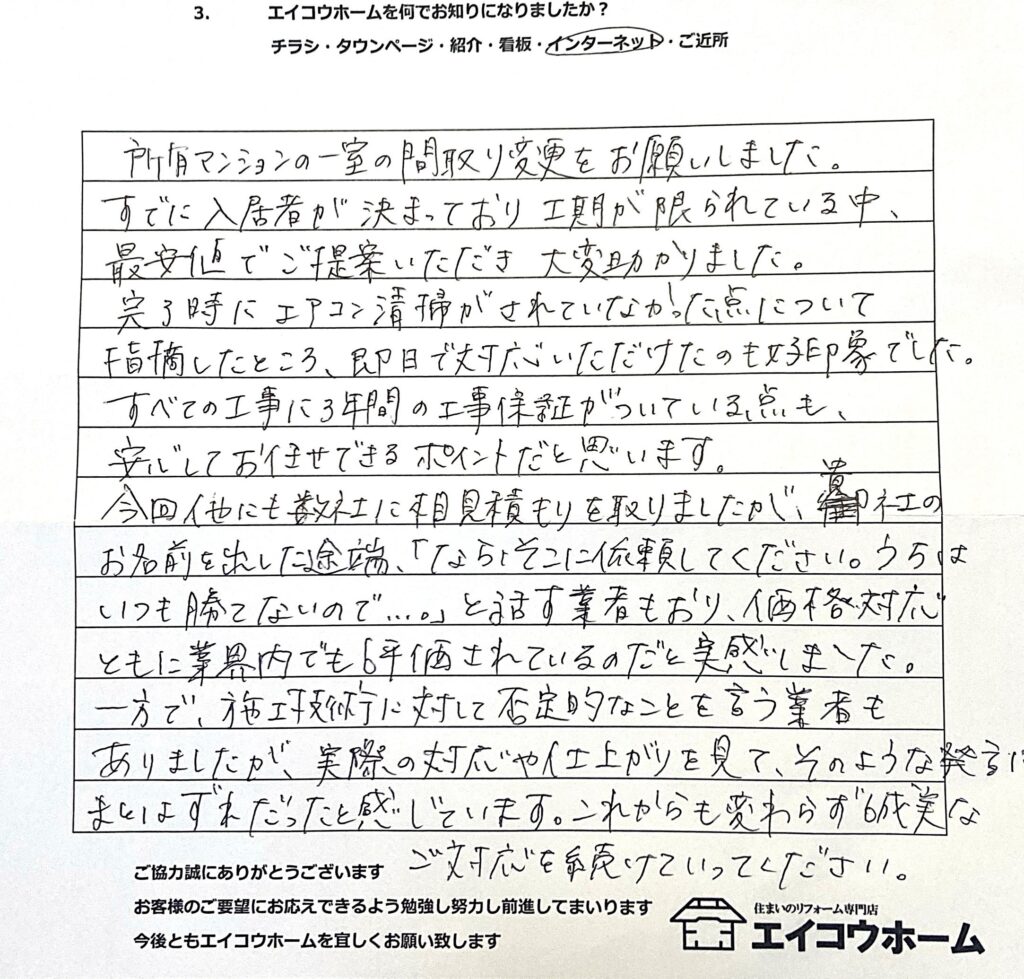 3. エイコウホームを何でお知りになりましたか？
チラシ・タウンページ・紹介・看板・インターネット・ご近所
所有マンションの一室の間取り変更をお願いしました。
すでに入居者が決まっており工期が限られている中、
最安値でご提案いただき 大変助かりました。
完了時にエアコン清掃がされていなかった点について
指摘したところ、即日で対応いただけたのも好印象でした。
すべての工事に3年間の工事保証がついている点も、
安心してお任せできるポイントだと思います。
今回他にも数社に相見積もりを取りましたが、貴社の
お名前を出した途端、「ならそこに依頼してください。うちは
いつも勝てないので…。」と話す業者もおり、価格対応
ともに業界内でも評価されているのだと実感しました。
一方で、施工技術に対して否定的なことを言う業者も
ありましたが、実際の対応や仕上がりを見て、そのような発言は
まとはずれだったと感じています。これからも変わらず誠実な
ご対応を続けていってください。
ご協力誠にありがとうございます
お客様のご要望にお応えできるよう勉強し努力し前進してまいります
今後ともエイコウホームを宜しくお願い致します
住まいのリフォーム専門店
エイコウホーム